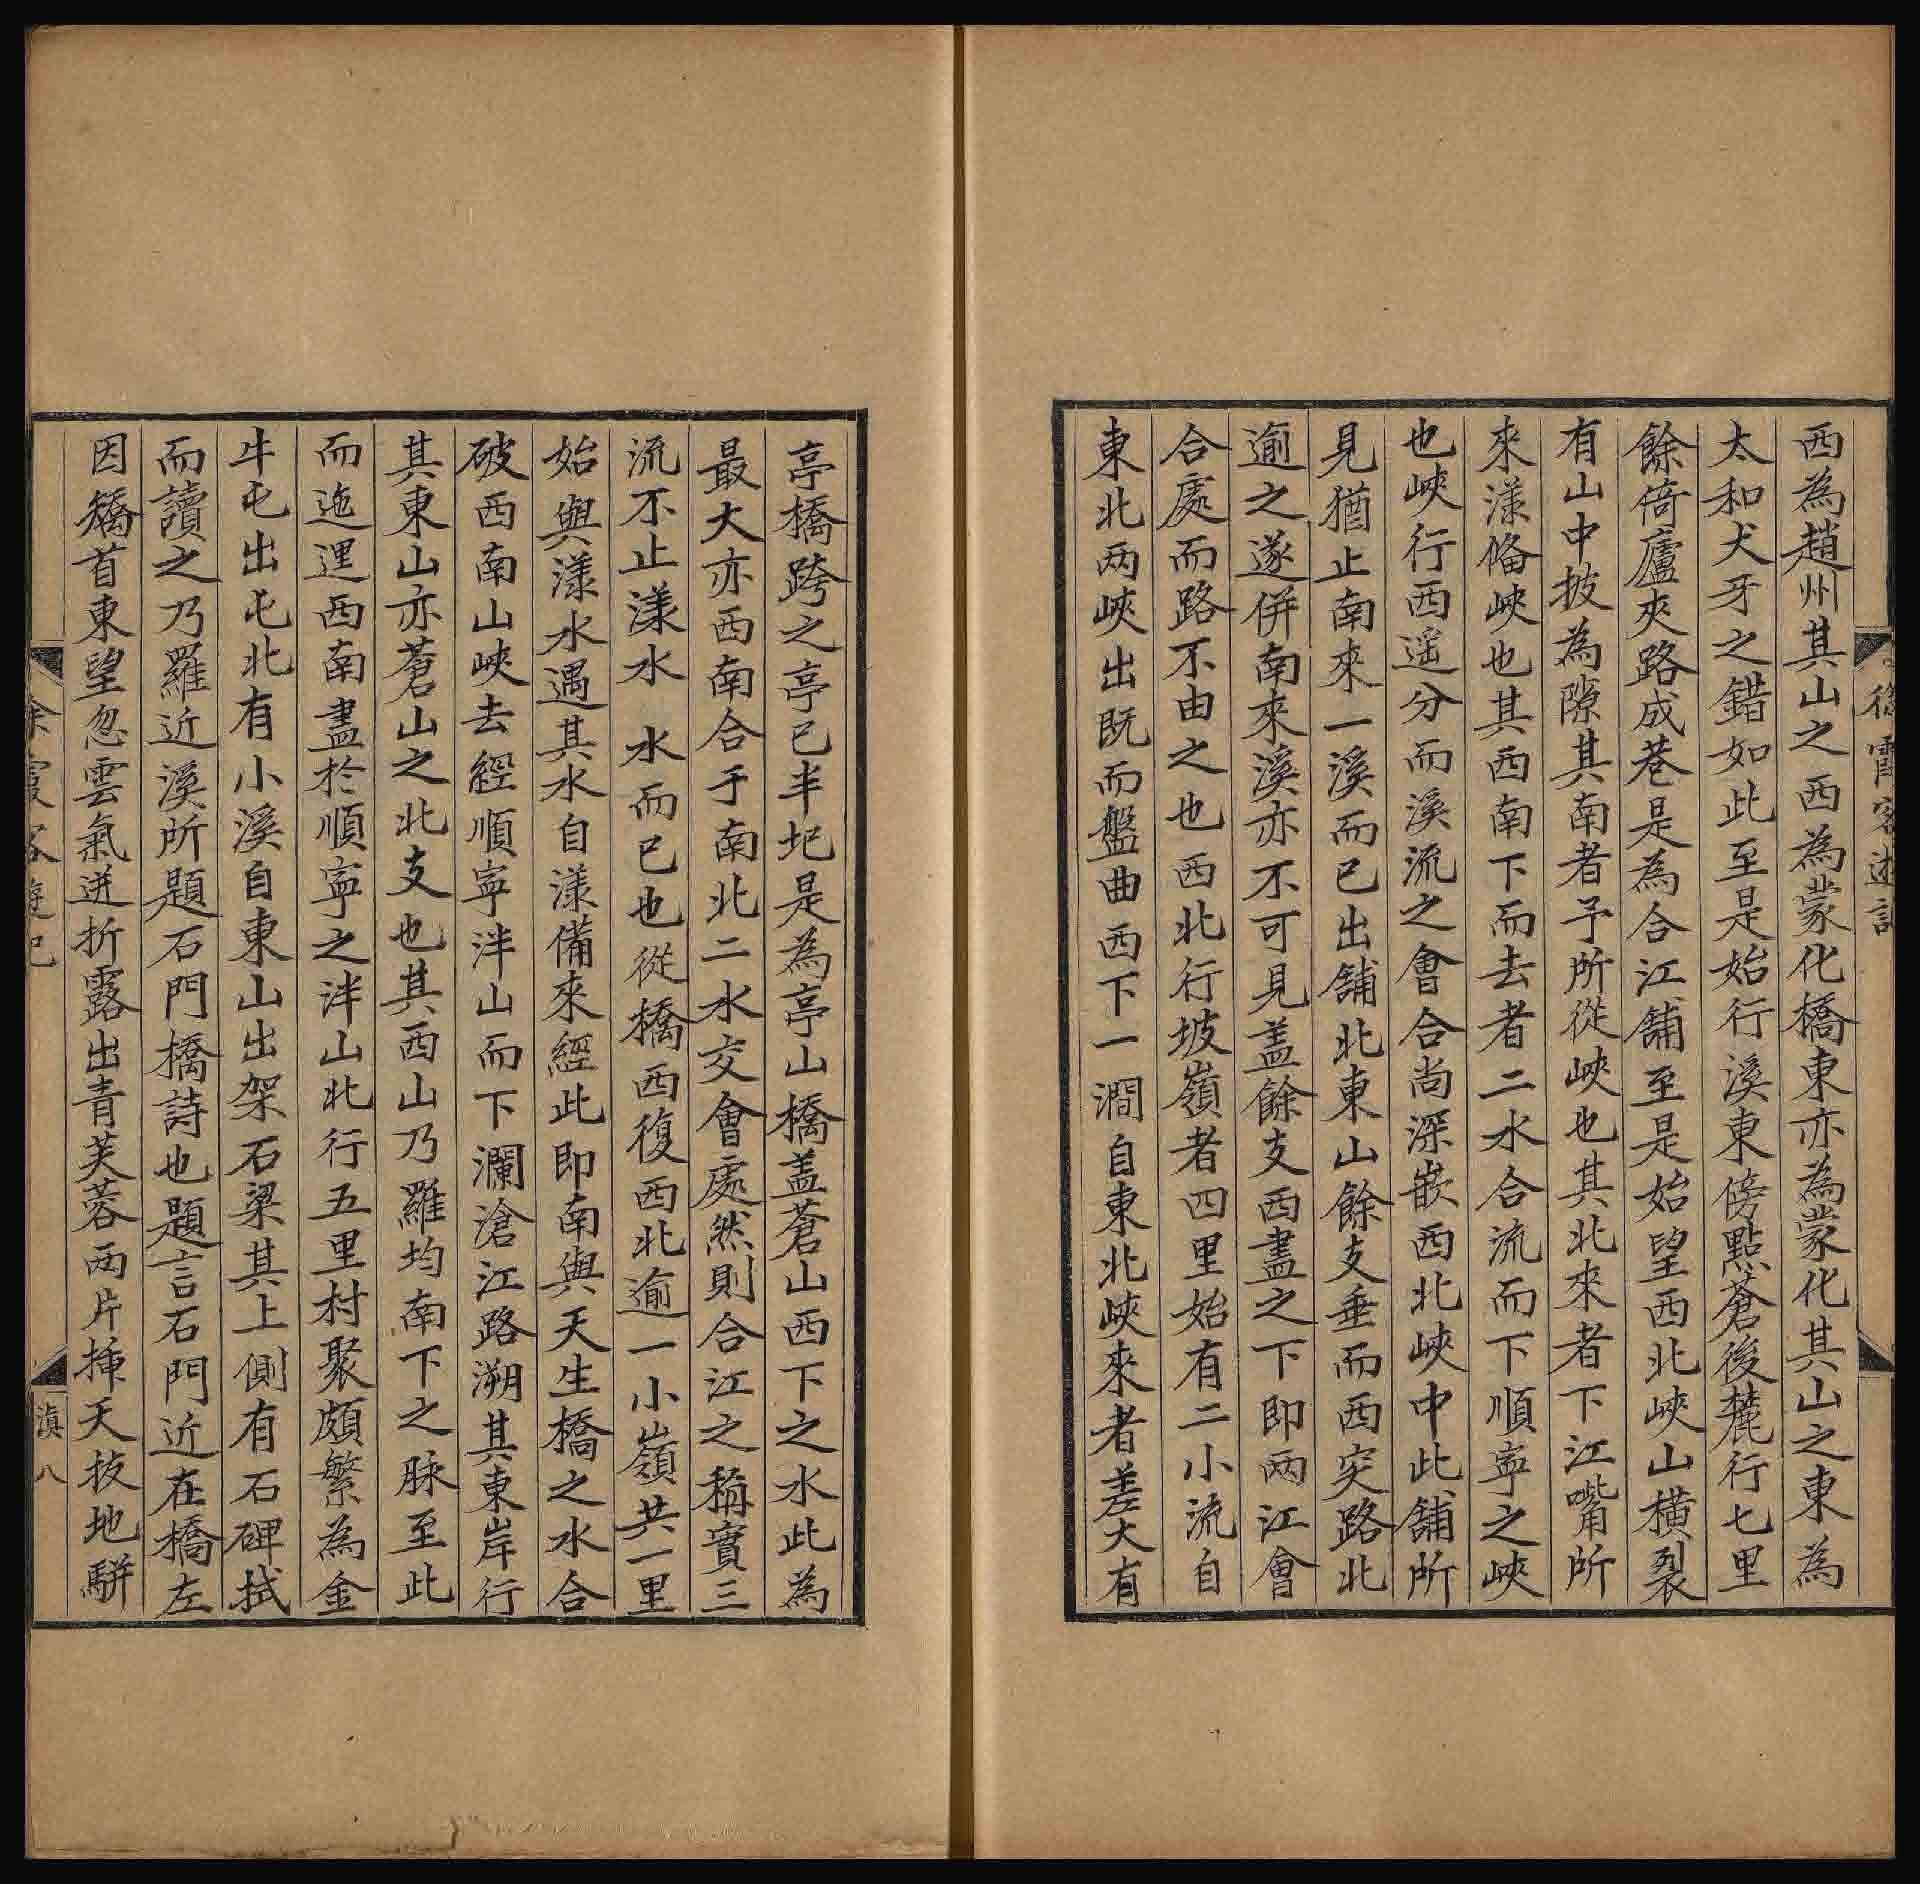 西為趙州其山之西為蒙化橋東亦為蒙化其山之東為
太和犬牙之錯如此至是始行溪東傍點蒼後麓行七里
餘倚廬夾路成巷是為合江舖至是始望西北峽山橫裂
有山中披為隙其南者予所從峽也其北來者下江嘴所
來漾俻峽也其西南下而去者二水合流而下順寧之峽
也峽行西遥分而溪流之會合尚深嵌西北峽中此舖所
見猶止南來一溪而已出舖北東山餘支垂而西突路北
逾之遂併南來溪亦不可見盖餘支西盡之下即兩江會
合處而路不由之也西北行坡嶺者四里始有二小流自
東北两峽出既而盤曲西下一澗自東北峽來者差大有
亭橋跨之亭已半圯是為亭山橋盖蒼山西下之水此為
最大亦西南合于南北二水交會處然則合江之稱實三
流不止漾水 水而已也從橋西復西北逾一小嶺共一里
始與漾水遇其水自漾備來經此即南與天生橋之水合
破西南山峽去經順寧泮山而下瀾滄江路溯其東岸行
其東山亦蒼山之北支也其西山乃羅均南下之脉至此
而迤邐西南盡於順寧之泮山北行五里村聚頗繁為金
牛屯出屯北有小溪自東山出架石梁其上側有石碑拭
而讀之乃羅近溪所題石門橋詩也題言石門近在橋左
因矯首東望忽雲氣迸折露出青芙蓉两片揷天拔地駢
滇八